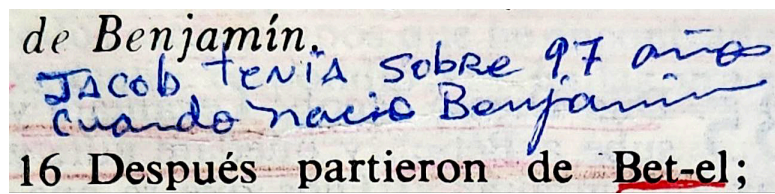 de Benjamín.
JACOB tENIA SobRE 97 años
cuando nacio Benjamin
16 Después partieron de Bet-el;